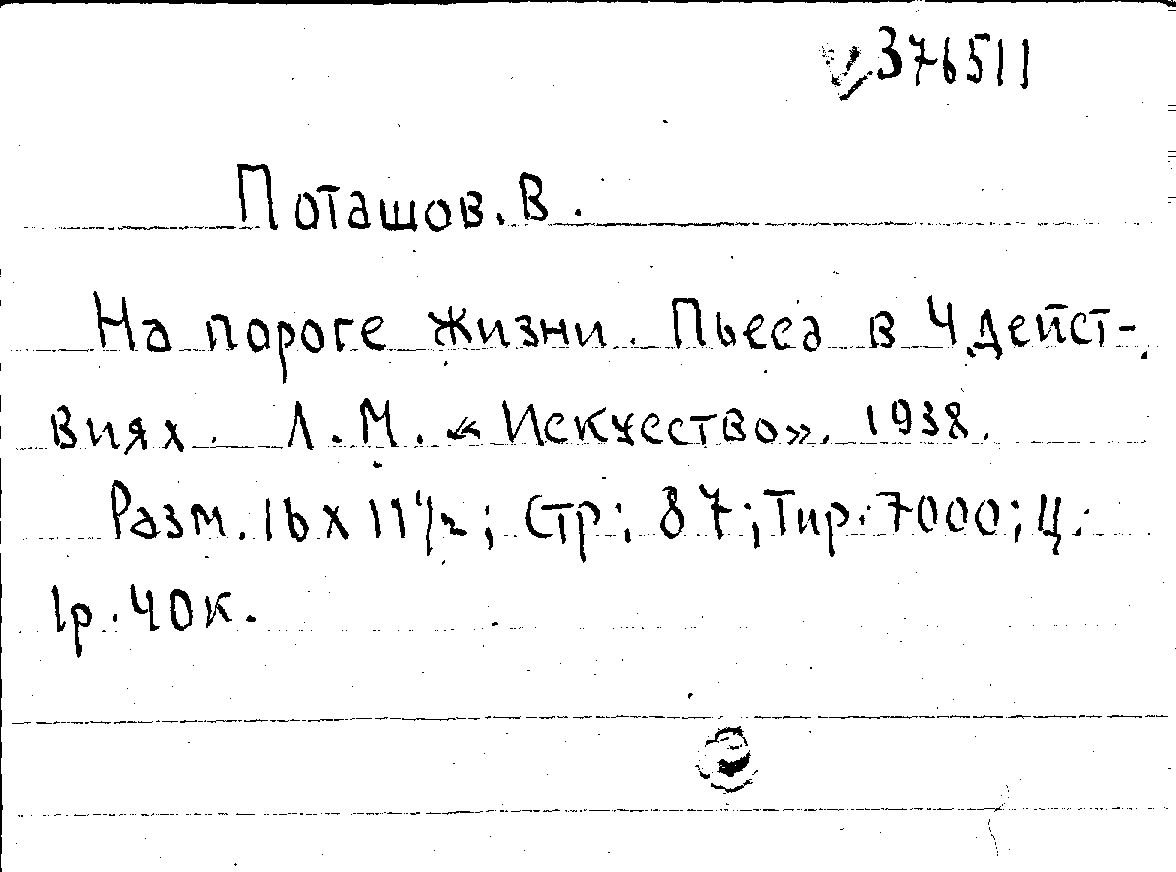 376511
Поташов. В.
На пороге жизни. Пьеса в 4 дейст-
виях. Л.М. «Искусство». 1938.
Разм. 16 х 11 1/2; Стр: 87; Тир. 7000; Ц:
1р. 40к.